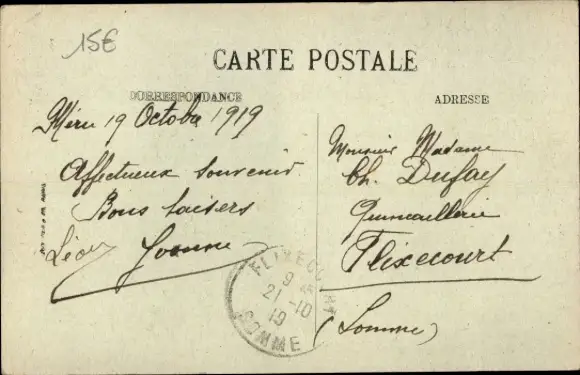 15€
CARTE POSTALE
CORRESPONDANCE
ADRESSE
Méru 19 Octobre 1919
Affectueux souvenir
Bons baisers
Léon Yvonne
Monsieur Madame
Ch. Dufay
Quincaillerie
Flixecourt
(Somme)
FLIXECOURT
9
21-10
19
SOMME